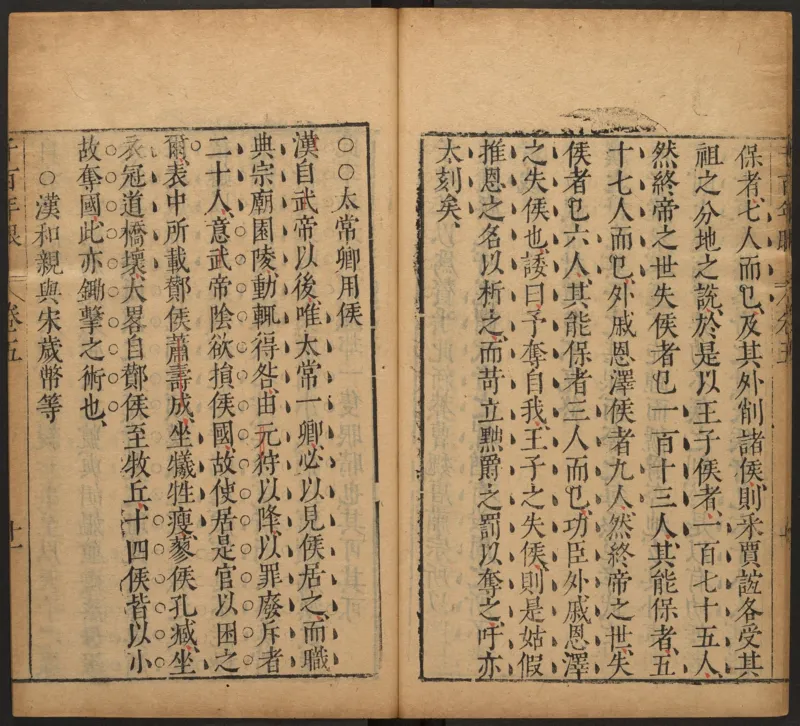 保者七人而已及其外削諸侯則采賈誼各受其
祖之分地之說於是以王子侯者一百七十五人
然終帝之世失侯者已一百十三人其能保者五
十七人而已外戚恩澤侯者九人然終帝之世失
侯者已六人其能保者三人而已功臣外戚恩澤
之失侯也諉曰予奪自我王子之失侯則是姑假
推恩之名以析之而苛立黜爵之罰以奪之吁亦
太刻矣
○○太常卿用侯
漢自武帝以後唯太常一卿必以見侯居之而職
典宗廟園陵動輒得咎由元狩以降以罪廢斥者
二十人意武帝陰欲損侯國故使居是官以困之
爾表中所載酇侯蕭壽成坐犧牲瘦蓼侯孔臧坐
衣冠道橋壞大畧自酇侯至牧丘十四侯皆以小
故奪國此亦鋤擊之術也
○漢和親與宋歲幣等
千百年眼 卷五 十一